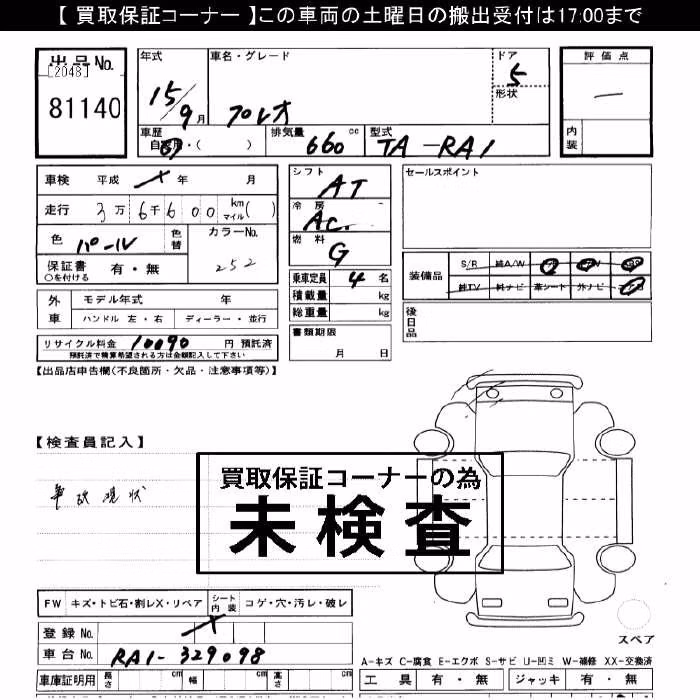 【 買取保証コーナー 】この車両の土曜日の搬出受付は17:00まで
出品No.
[2048]
81140
年式 車名・グレード ドア
15/9月 プレオ 5
形状
車歴 排気量 cc 型式
自家用・( ) 660 TA-RA1
評価点
—
内装
車検 平成 × 年 月
走行 3万6千600 km マイル ( )
色 パール 色替 カラーNo.
252
保証書 有・無
○を付ける
外車 モデル年式 年
ハンドル 左・右 ディーラー・並行
リサイクル料金 10090 円 預託済
預託済で精算希望される方は金額記入して下さい
シフト AT
冷房 AC
燃料 G
乗車定員 4 名
積載量 kg
総重量 kg
書類期限
月 日
セールスポイント
装備品 S/R 純A/W
純TV 純ナビ 革シート 外ナビ
後日品
【出品店申告欄(不良箇所・欠品・注意事項等)】
【検査員記入】
事故現状
買取保証コーナーの為
未検査
FW キズ・トビ石・割レX・リペア シート内装 コゲ・穴・汚レ・破レ
登録No. ×
車台No. RA1-329098
車庫証明用 長さ cm 幅 cm 高さ cm
スペア
A-キズ C-腐食 E-エクボ S-サビ U-凹ミ W-補修 XX-交換済
工具 有・無 ジャッキ 有・無